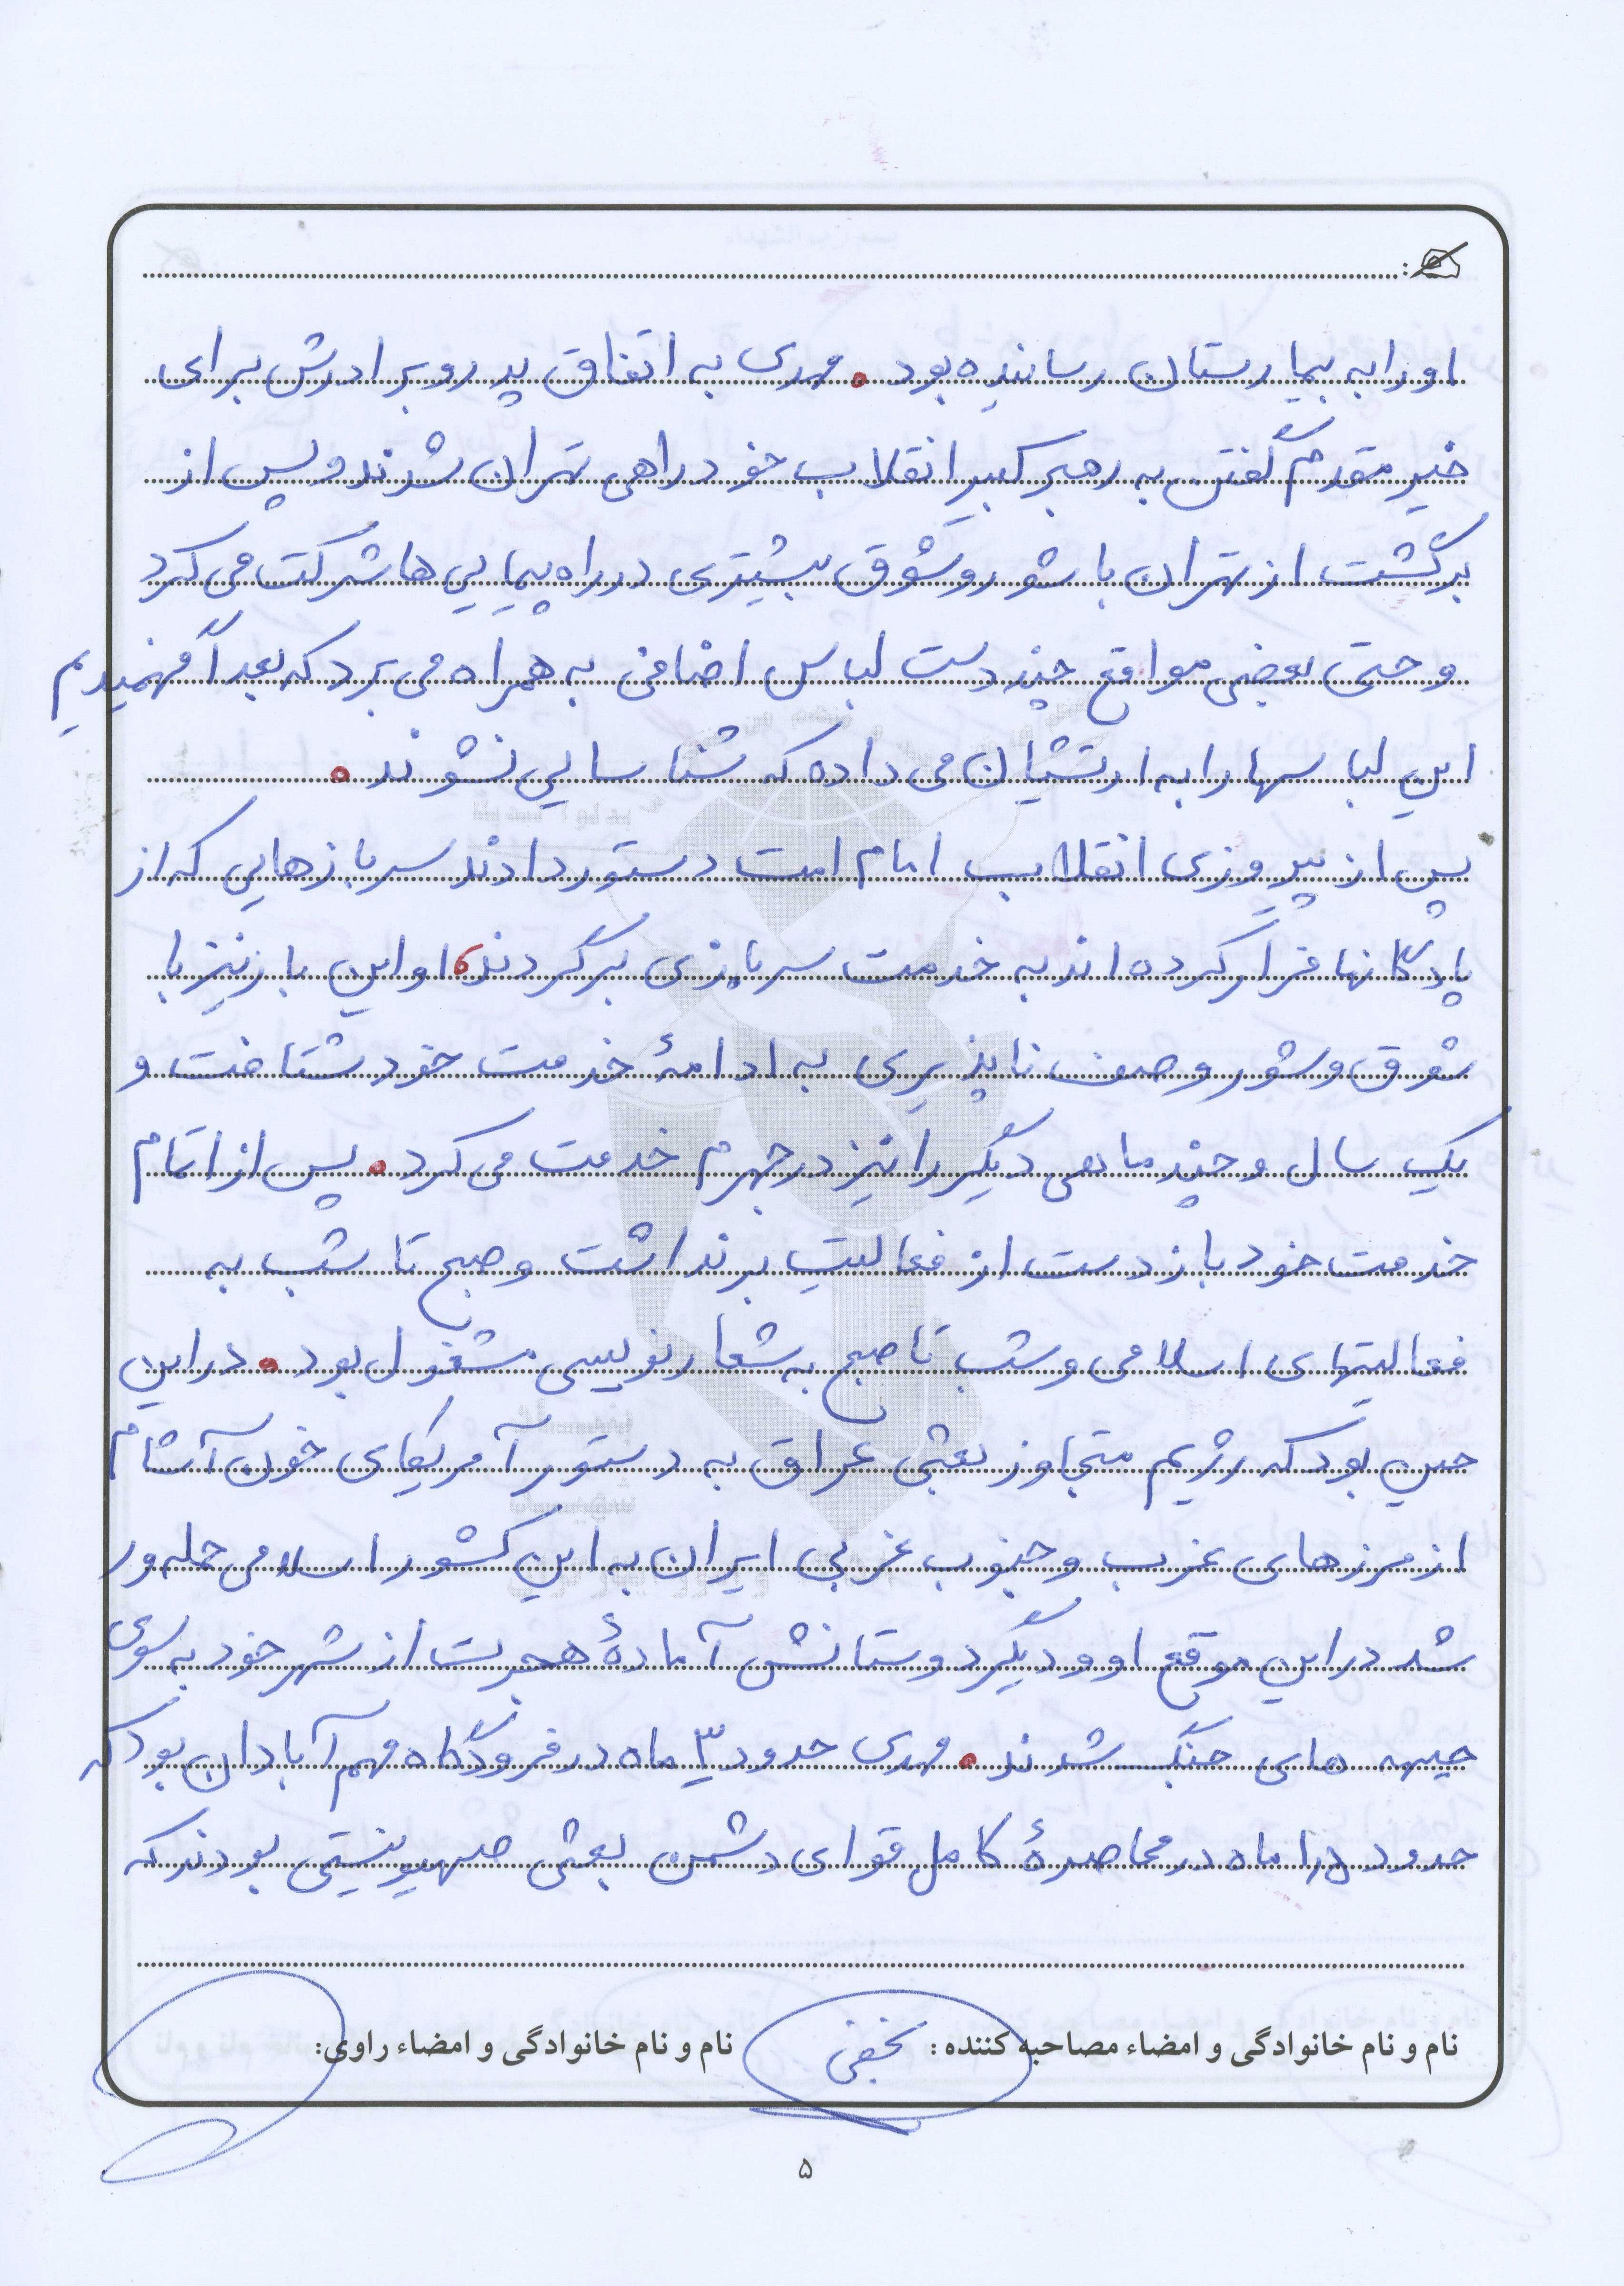 او را به بیمارستان رسانیده بود. مهدی به اتفاق پدر و برادرش برای
خیر مقدم گفتن به رهبر کبیر انقلاب خود راهی تهران شدند و پس از
برگشت از تهران با شور و شوق بیشتری در راه پیمایی ها شرکت می کرد
و حتی بعضی مواقع چند دست لباس اضافی به همراه می برد که بعداً فهمیدیم
این لباسها را به ارتشیان می داده که شناسایی نشوند.
پس از پیروزی انقلاب امام امت دستور دادند سربازهایی که از
پادگانها فرار کرده اند به خدمت سربازی برگردند، او این بار نیز با
شوق و شور وصف ناپذیری به ادامۀ خدمت خود شتافت و
یک سال و چند ماهی دیگر را نیز در جهرم خدمت می کرد. پس از اتمام
خدمت خود باز دست از فعالیت برنداشت و صبح تا شب به
فعالیتهای اسلامی و شب تا صبح به شعار نویسی مشغول بود. در این
حین بود که رژیم متجاوز بعثی عراق به دستور آمریکای خون آشام
از مرزهای غرب و جنوب غربی ایران به این کشور اسلامی حمله ور
شد در این موقع او و دیگر دوستانش آمادۀ هجرت از شهر خود به سوی
جبهه های جنگ شدند. مهدی حدود ۳ ماه در فرودگاه مهم آبادان بود که
حدود ۱/۵ ماه در محاصرۀ کامل قوای دشمن بعثی صهیونیستی بودند که
نام و نام خانوادگی و امضاء مصاحبه کننده : نخفی نام و نام خانوادگی و امضاء راوی:
۵